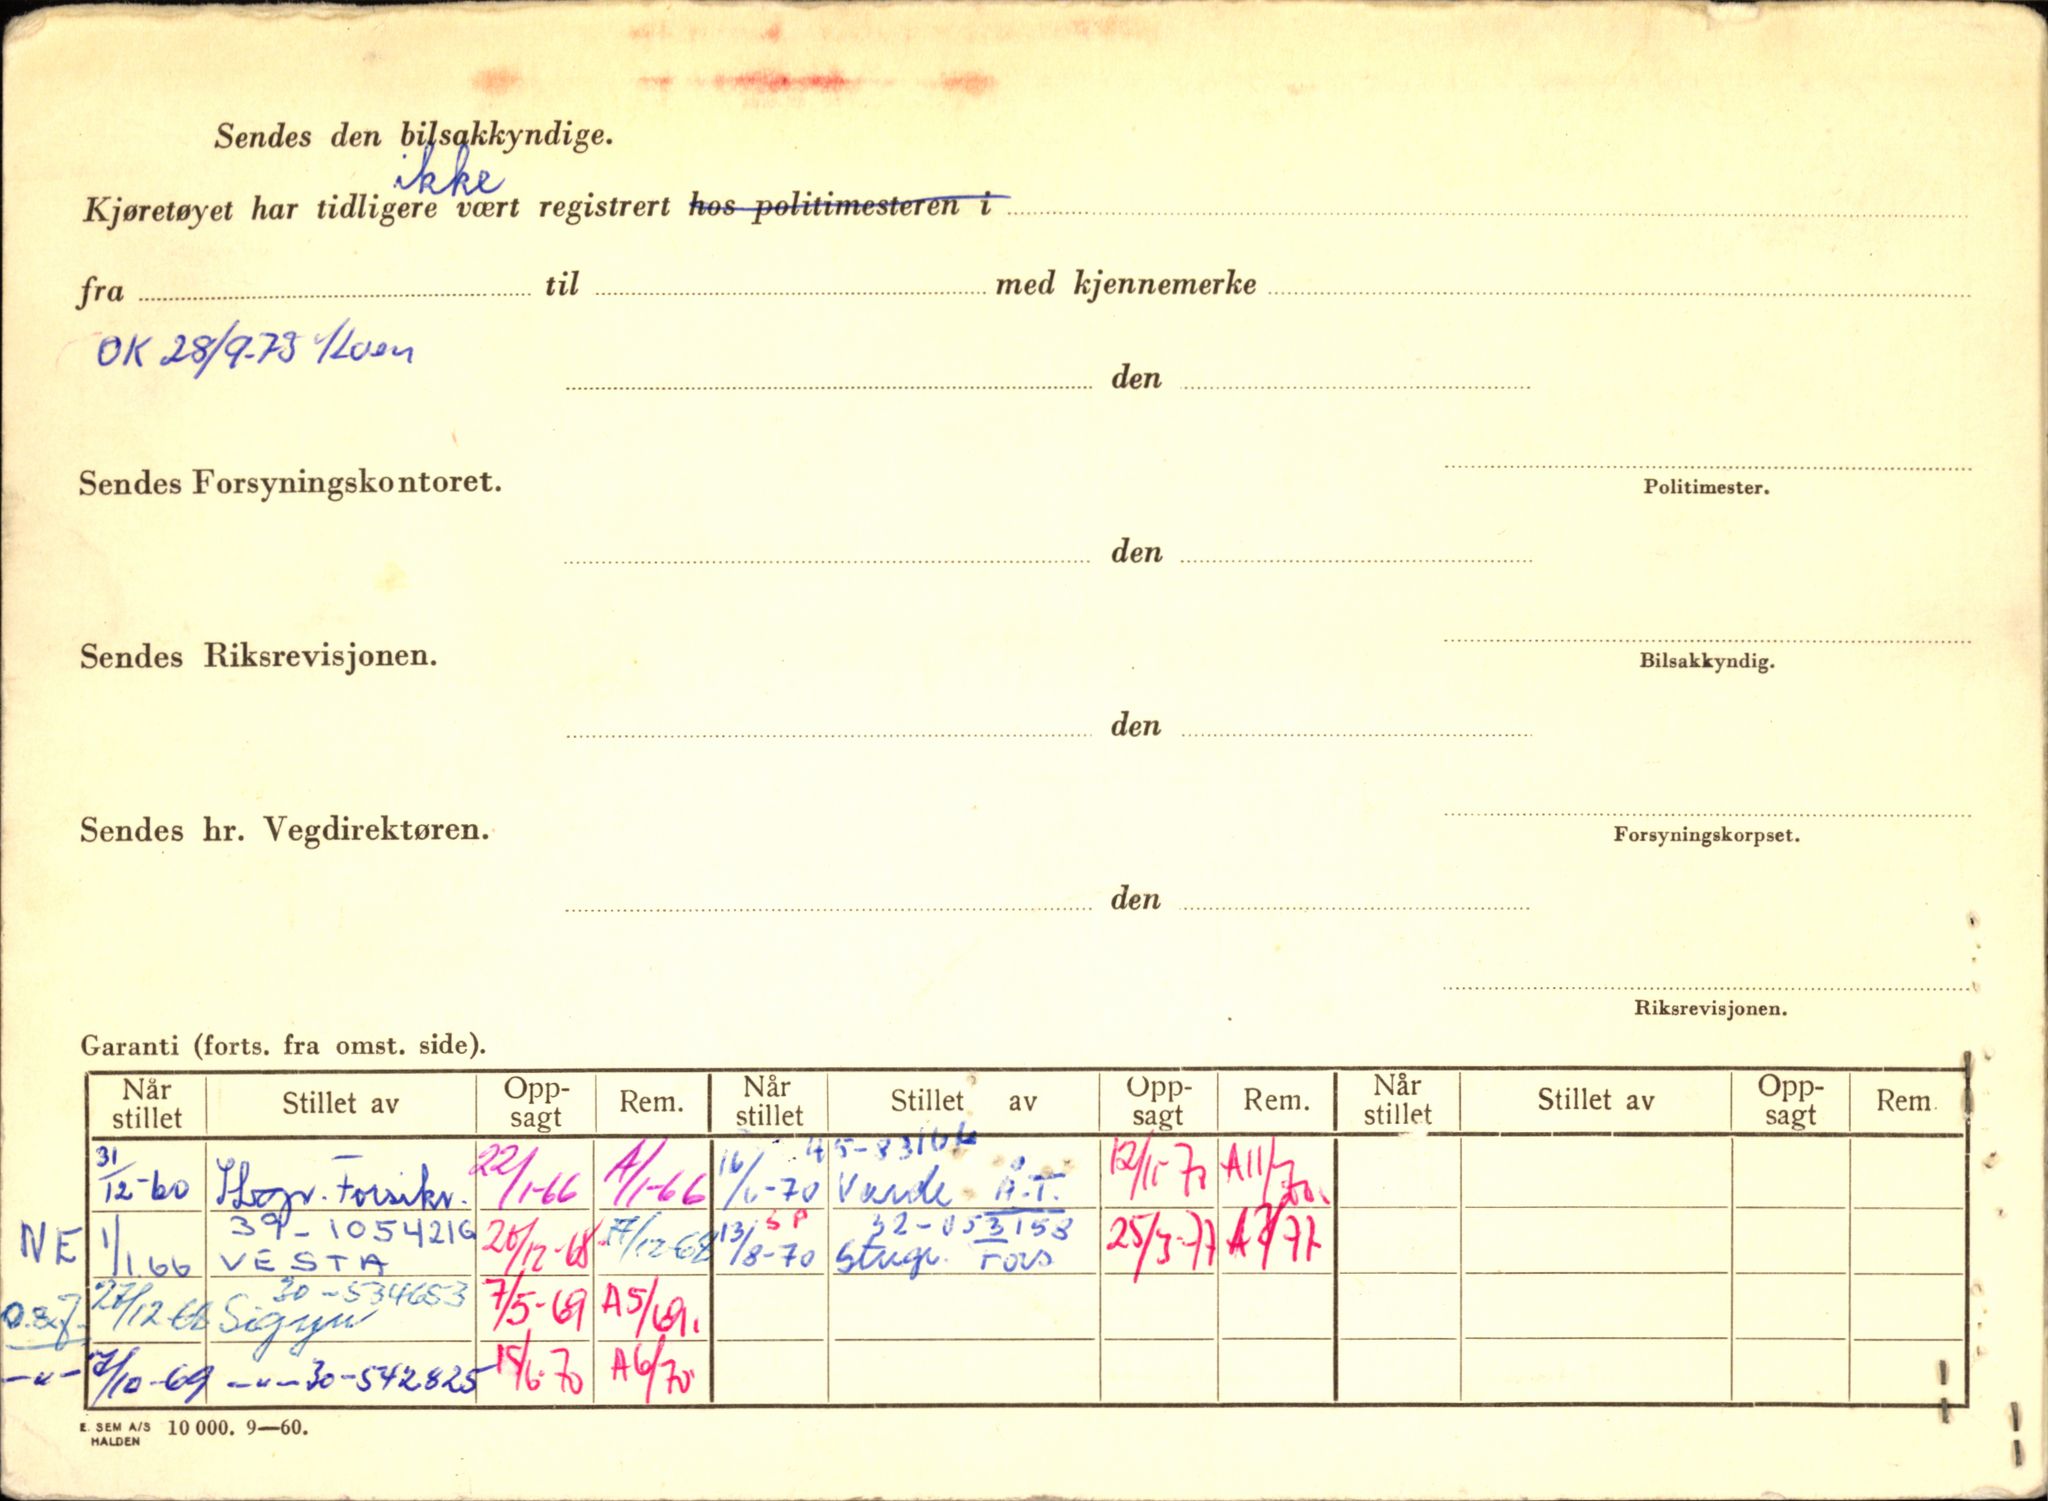 Sendes den bilsakkyndige.
ikke
Kjøretøyet har tidligere vært registrert hos politimesteren i
fra til med kjennemerke
OK 28/9-73
den
Politimester.
Sendes Forsyningskontoret.
den
Bilsakkyndig.
Sendes Riksrevisjonen.
den
Forsyningskorpset.
Sendes hr. Vegdirektøren.
den
Riksrevisjonen.
Garanti (forts. fra omst. side).
Når stillet Stillet av Opp-sagt Rem. Når stillet Stillet av Opp-sagt Rem. Når stillet Stillet av Opp-sagt Rem
31/12-60 Forsikr. 22/1-66 A/1-66 16/6-70 Varde A.T. 12/11-70 A11/70.
NE 1/1.66 39-1054216 VESTA 20/12-68 27/12-68 13/8-70 SP 32-053153 Fors 25/3-77 A3/77
27/12-68 30-534653 Sigyn 7/5-69 A5/69.
-"- 7/10-69 -"- 30-542825 15/6-70 A6/70
E. SEM A/S HALDEN 10 000. 9—60.